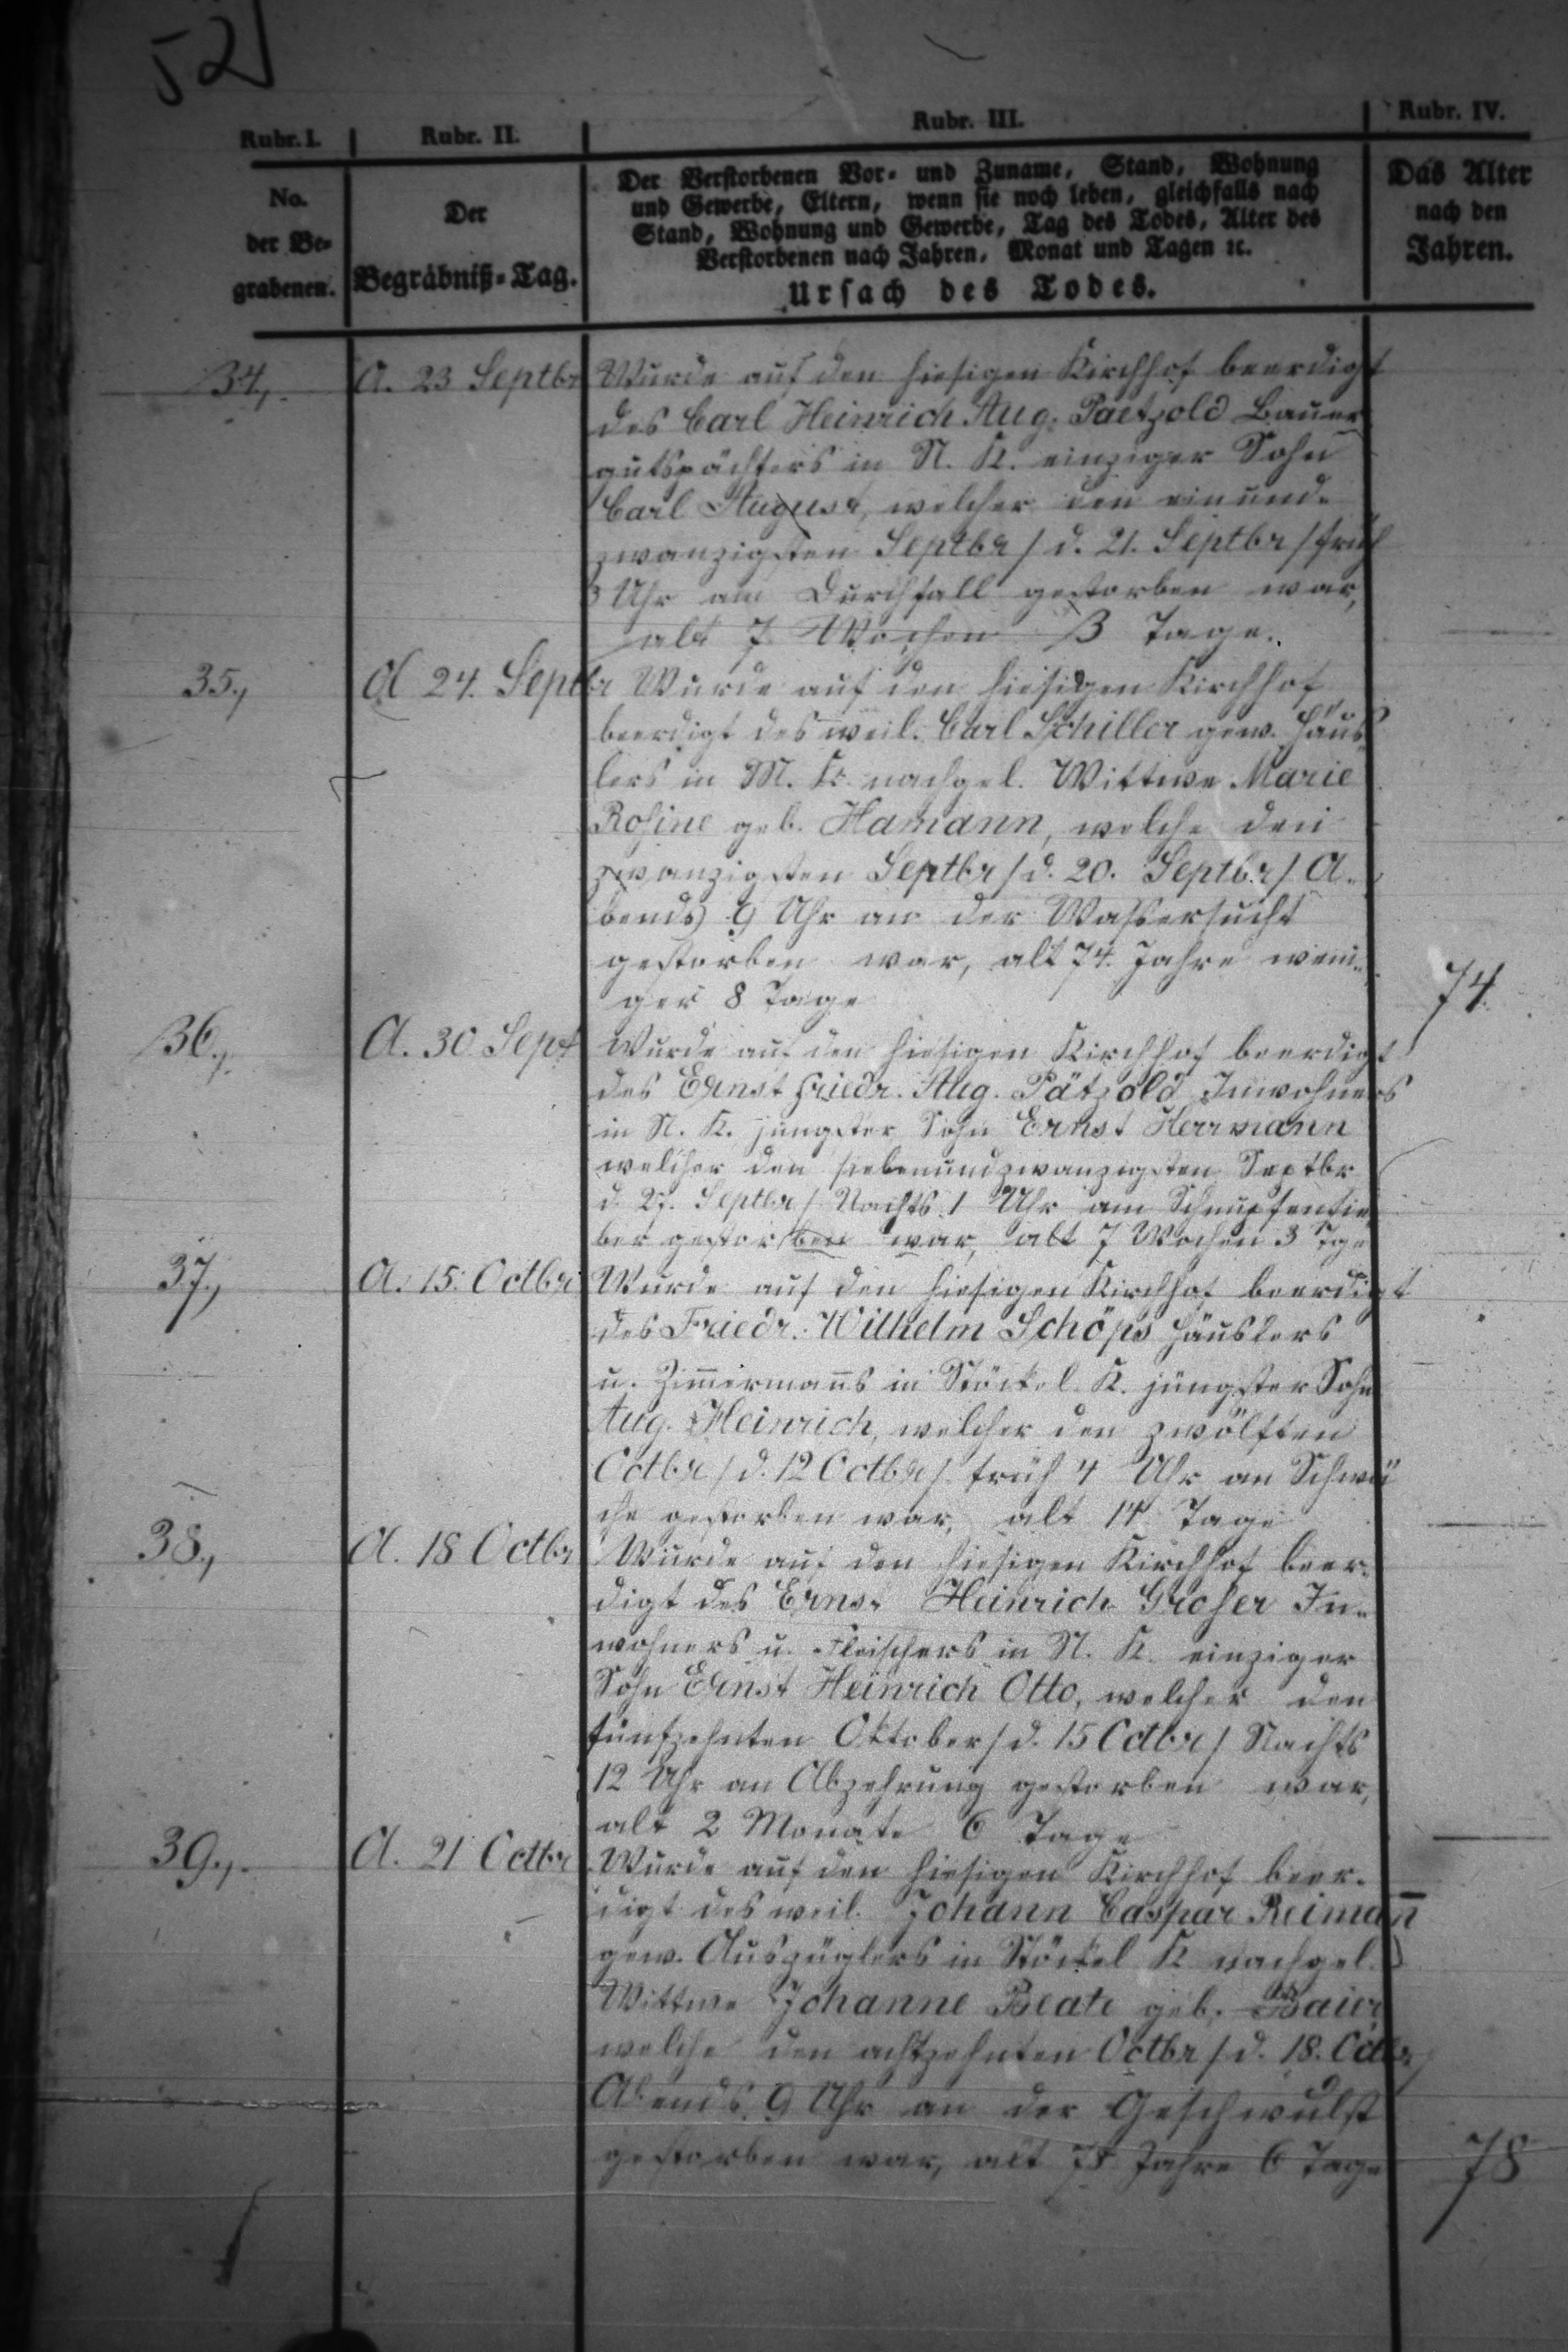 52
Rubr. I. Rubr. II. Rubr. III. Rubr. IV.
No.
der Be-
grabenen.
Der
Begräbniß-Tag.
Der Verstorbenen Vor- und Zuname, Stand, Wohnung
und Gewerbe, Eltern, wenn sie noch leben, gleichfalls nach
Stand, Wohnung und Gewerbe, Tag des Todes, Alter des
Verstorbenen nach Jahren, Monat und Tagen ꝛc.
Ursach des Todes.
Das Alter
nach den
Jahren.
34, d. 23 Septbr Wurde auf den hiesigen Kirchhof beerdigt
des Carl Heinrich Aug. Paetzold Bauer
gutspächters in N. K. einziger Sohn
Carl August, welcher den einund-
zwanzigsten Septbr / d. 21. Septbr / früh
3 Uhr am Durchfall gestorben war,
alt 7 Wochen 3 Tage.
35, d 24. Septbr Wurde auf den hiesigen Kirchhof
beerdigt des weil. Carl Schiller gew. Häus
lers in M. K. nachgel. Wittwe Marie
Rosine geb. Hamann, welche den
zwanzigsten Septbr / d. 20. Septbr / A-
bends 9 Uhr an der Wassersucht
gestorben war, alt 74. Jahre weni-
ger 8 Tage 74
36, d. 30 Sept Wurde auf den hiesigen Kirchhof beerdigt
des Ernst Friedr. Aug. Pätzold Inwohners
in N. K. jüngster Sohn Ernst Herrmann
welcher den siebenundzwanzigsten Septbr
d. 27. Septbr / Nachts 1 Uhr am Schnupfenfie
ber gestorben war, alt 7 Wochen 3 Tge
37, d. 15. Octbr Wurde auf den hiesigen Kirchhof beerdigt
des Friedr. Wilhelm Schöps Häuslers
u. Zimmermanns in Stöckel K. jüngster Sohn
Aug. Heinrich, welcher den zwölften
Octbr / d. 12 Octbr / früh 4 Uhr an Schwä
che gestorben war, alt 14 Tage
38, d. 18 Octbr Wurde auf den hiesigen Kirchhof beer-
digt des Ernst Heinrich Groser In-
wohners u. Fleischers in N. K. einziger
Sohn Ernst Heinrich Otto, welcher den
fünfzehnten Oktober / d. 15 Octbr / Nachts
12 Uhr an Abzehrung gestorben war,
alt 2 Monate 6 Tage
39, d. 21 Octbr Wurde auf den hiesigen Kirchhof beer-
digt des weil. Johann Caspar Reiman̄
gew. Auszüglers in Stöckel K nachgel.
Wittwe Johanne Beate geb. Baier
welche den achtzehnten Octbr / d. 18. Octbr /
Abends 9 Uhr an der Geschwulst
gestorben war, alt 78 Jahre 6 Tage 78